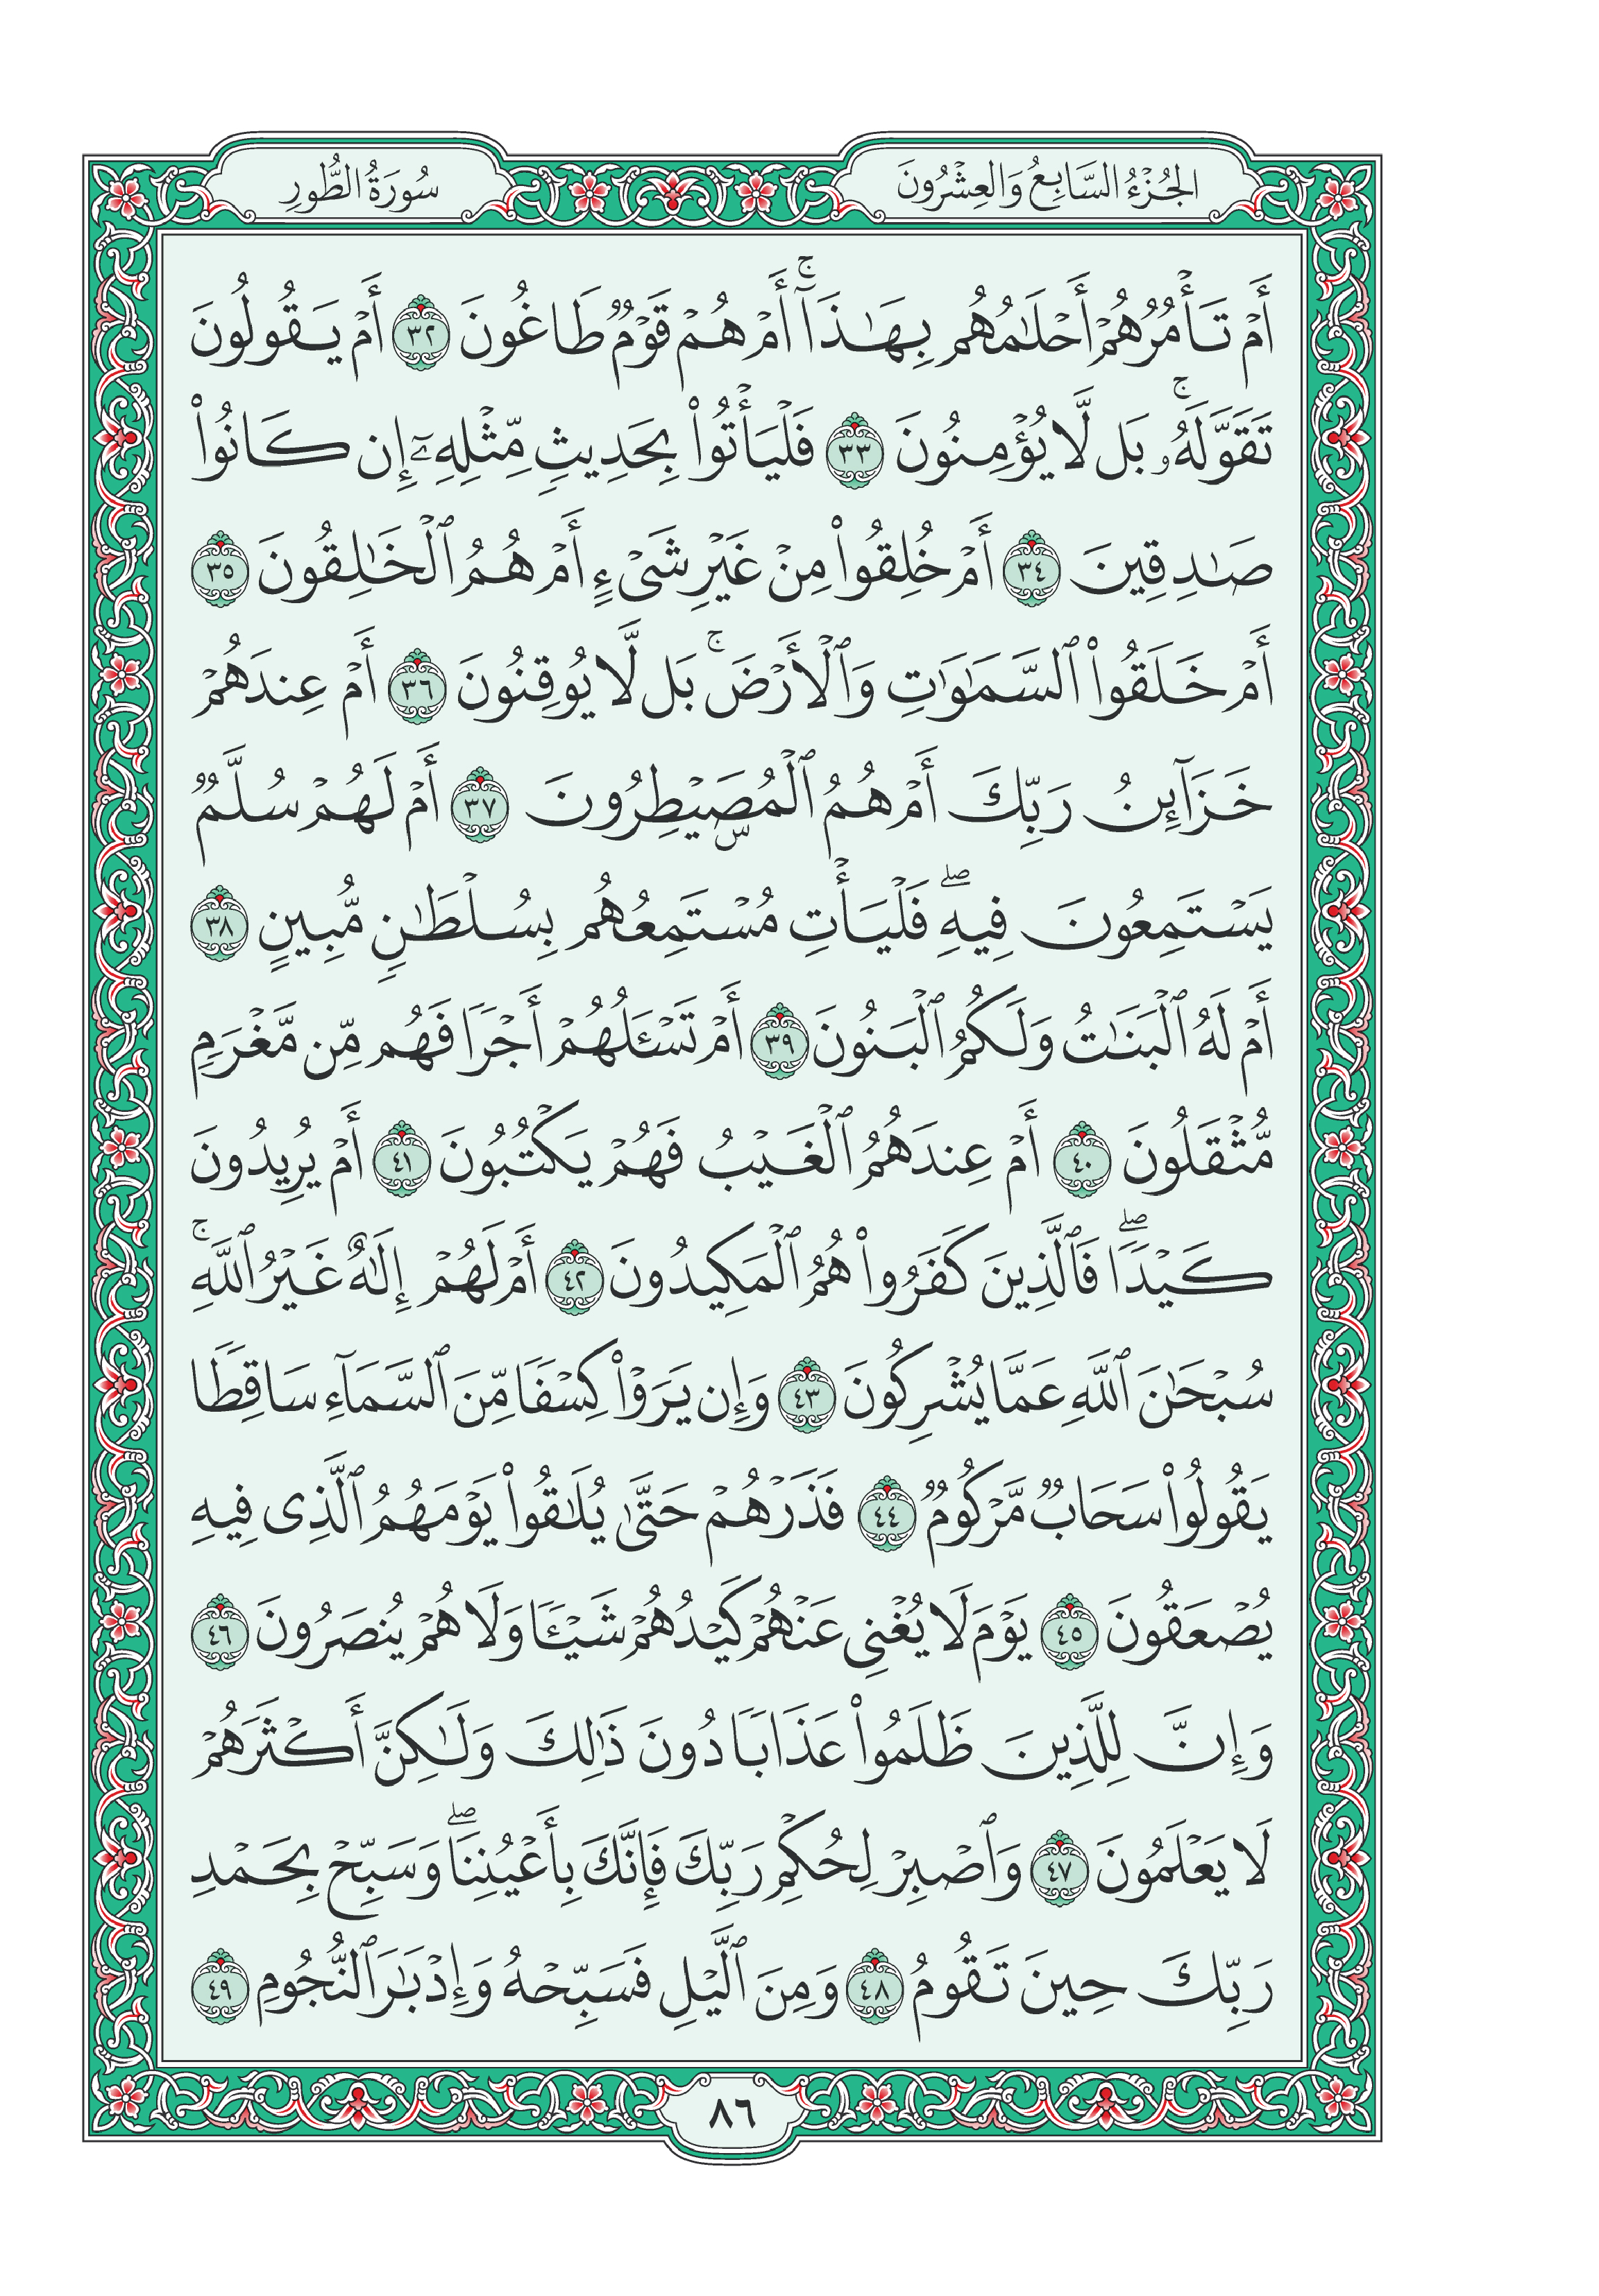 الجُزْءُ السَّابِعُ وَالعِشْرُونَ
سُورَةُ الطُّورِ
أَمْ تَأْمُرُهُمْ أَحْلَٰمُهُم بِهَٰذَآۚ أَمْ هُمْ قَوْمٌ طَاغُونَ ٣٢ أَمْ يَقُولُونَ
تَقَوَّلَهُۥۚ بَل لَّا يُؤْمِنُونَ ٣٣ فَلْيَأْتُوا۟ بِحَدِيثٍ مِّثْلِهِۦٓ إِن كَانُوا۟
صَٰدِقِينَ ٣٤ أَمْ خُلِقُوا۟ مِنْ غَيْرِ شَىْءٍ أَمْ هُمُ ٱلْخَٰلِقُونَ ٣٥
أَمْ خَلَقُوا۟ ٱلسَّمَٰوَٰتِ وَٱلْأَرْضَۚ بَل لَّا يُوقِنُونَ ٣٦ أَمْ عِندَهُمْ
خَزَآئِنُ رَبِّكَ أَمْ هُمُ ٱلْمُصَۣيْطِرُونَ ٣٧ أَمْ لَهُمْ سُلَّمٌ
يَسْتَمِعُونَ فِيهِۖ فَلْيَأْتِ مُسْتَمِعُهُم بِسُلْطَٰنٍ مُّبِينٍ ٣٨
أَمْ لَهُ ٱلْبَنَٰتُ وَلَكُمُ ٱلْبَنُونَ ٣٩ أَمْ تَسْـَٔلُهُمْ أَجْرًا فَهُم مِّن مَّغْرَمٍ
مُّثْقَلُونَ ٤٠ أَمْ عِندَهُمُ ٱلْغَيْبُ فَهُمْ يَكْتُبُونَ ٤١ أَمْ يُرِيدُونَ
كَيْدًاۖ فَٱلَّذِينَ كَفَرُوا۟ هُمُ ٱلْمَكِيدُونَ ٤٢ أَمْ لَهُمْ إِلَٰهٌ غَيْرُ ٱللَّهِۚ
سُبْحَٰنَ ٱللَّهِ عَمَّا يُشْرِكُونَ ٤٣ وَإِن يَرَوْا۟ كِسْفًا مِّنَ ٱلسَّمَآءِ سَاقِطًا
يَقُولُوا۟ سَحَابٌ مَّرْكُومٌ ٤٤ فَذَرْهُمْ حَتَّىٰ يُلَٰقُوا۟ يَوْمَهُمُ ٱلَّذِى فِيهِ
يُصْعَقُونَ ٤٥ يَوْمَ لَا يُغْنِى عَنْهُمْ كَيْدُهُمْ شَيْـًٔا وَلَا هُمْ يُنصَرُونَ ٤٦
وَإِنَّ لِلَّذِينَ ظَلَمُوا۟ عَذَابًا دُونَ ذَٰلِكَ وَلَٰكِنَّ أَكْثَرَهُمْ
لَا يَعْلَمُونَ ٤٧ وَٱصْبِرْ لِحُكْمِ رَبِّكَ فَإِنَّكَ بِأَعْيُنِنَاۖ وَسَبِّحْ بِحَمْدِ
رَبِّكَ حِينَ تَقُومُ ٤٨ وَمِنَ ٱلَّيْلِ فَسَبِّحْهُ وَإِدْبَٰرَ ٱلنُّجُومِ ٤٩
٨٦